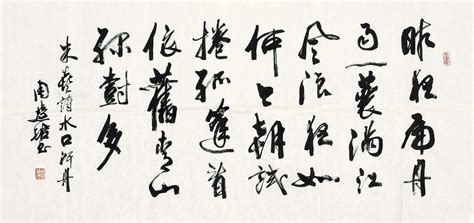 昨夜扁舟
雨一蓑满江
风浪夜如
何今朝試
捲孤篷看
依舊青山
綠樹多
朱熹詩水口行舟
周 书